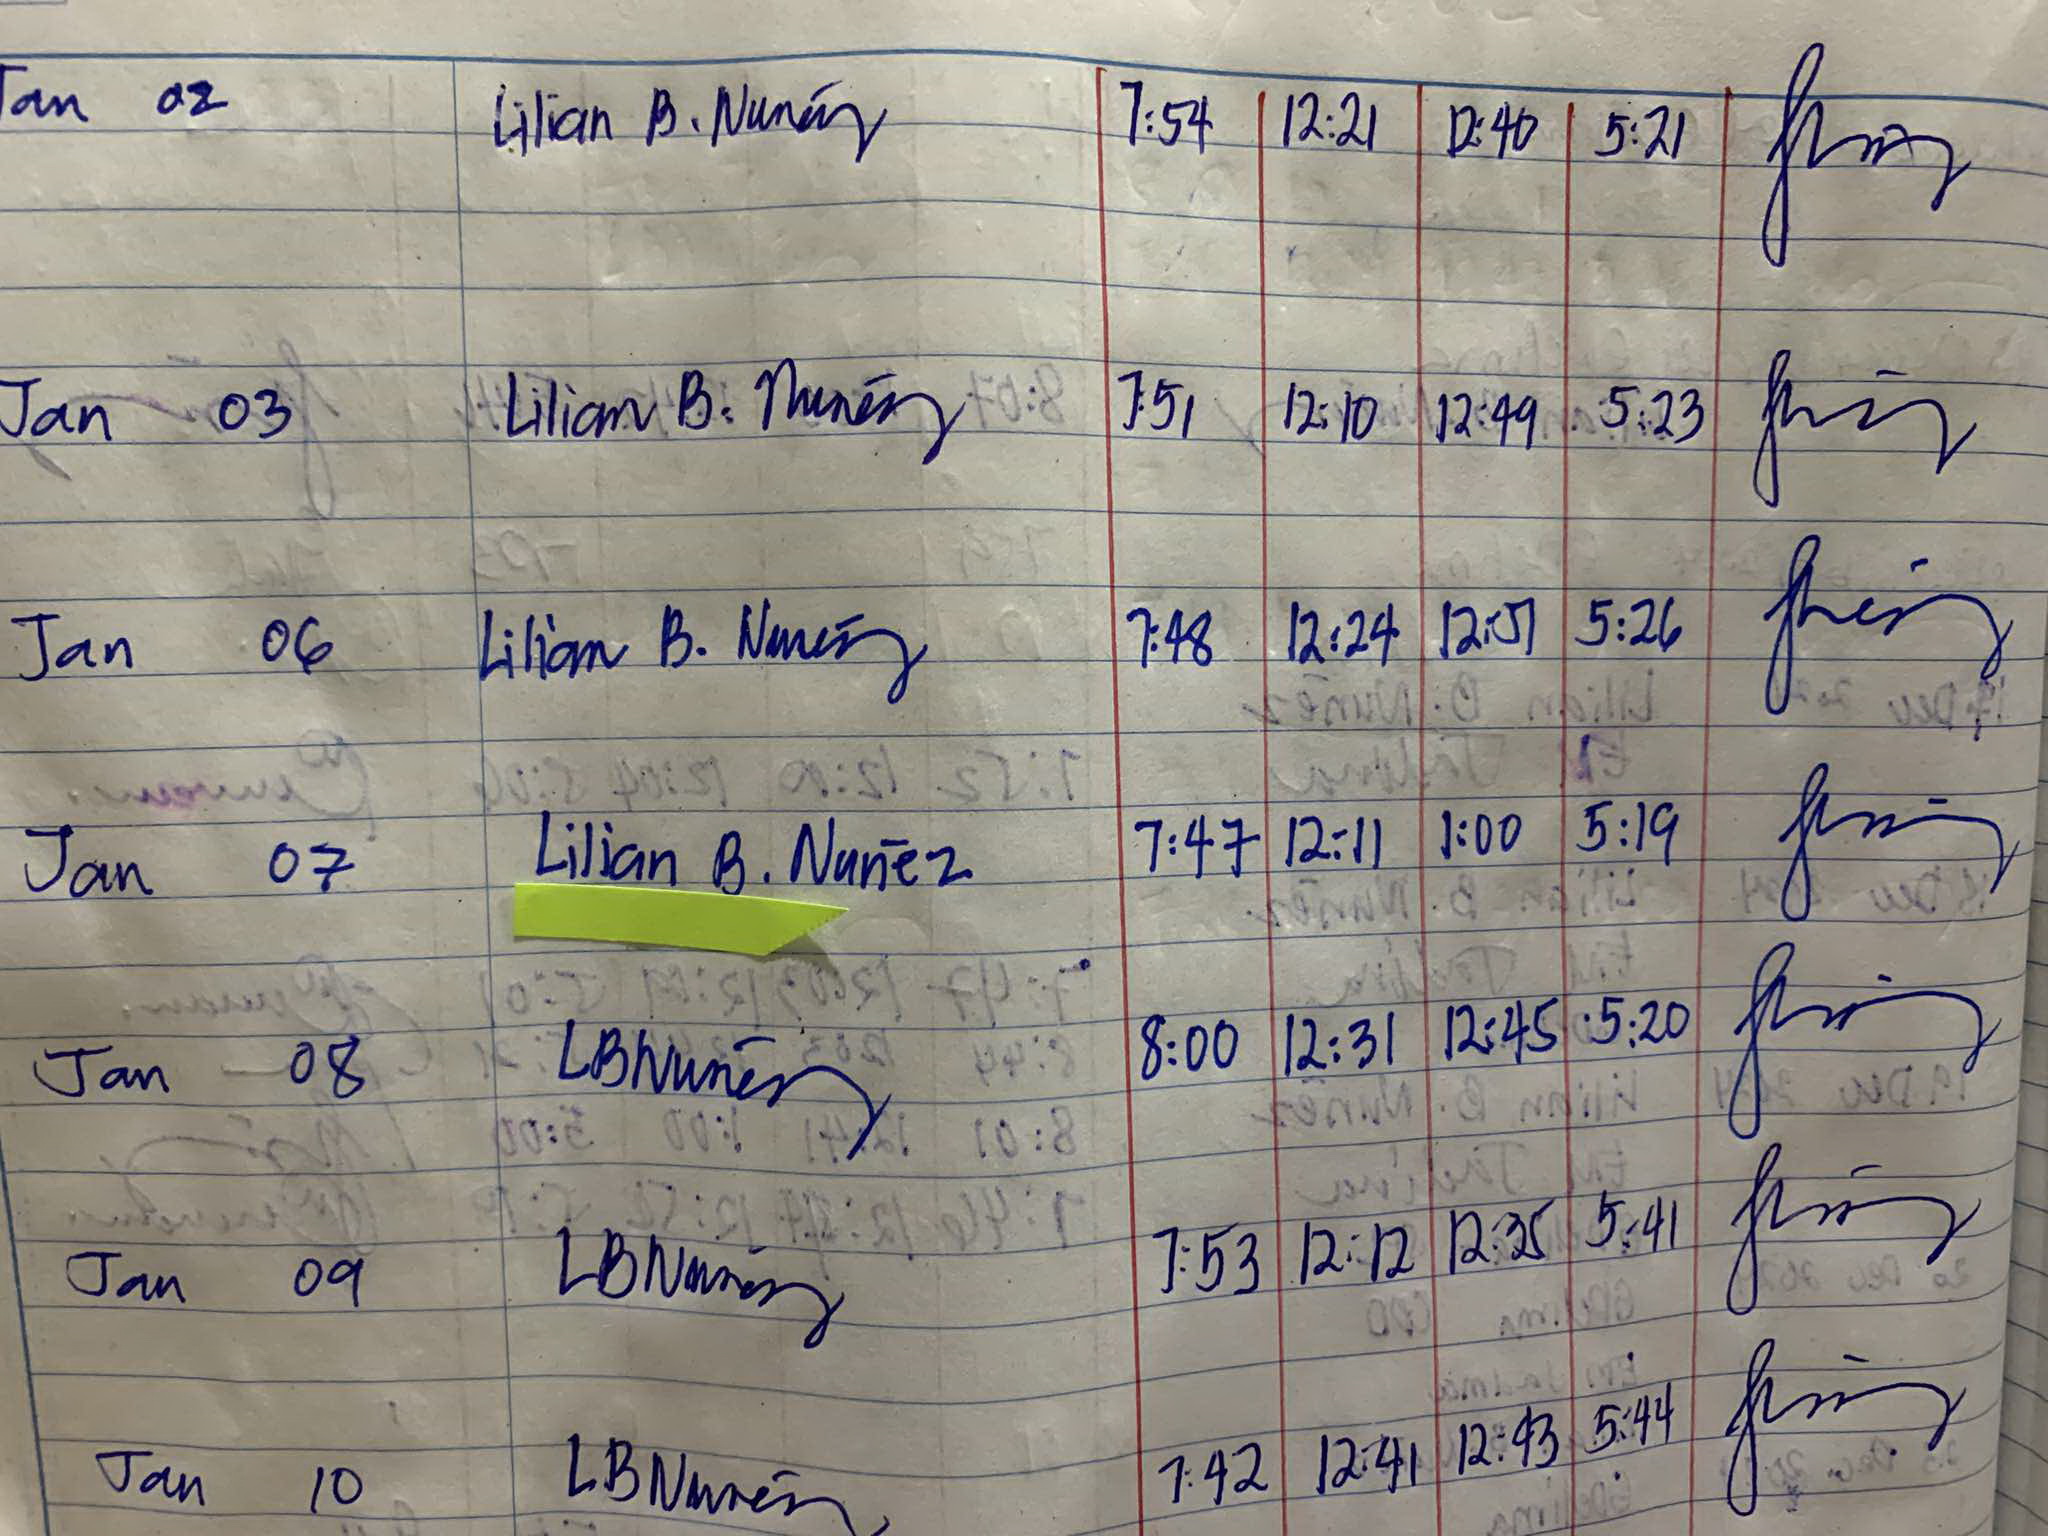 Jan 02 Lilian B. Nuñez 7:54 12:21 12:40 5:21
Jan 03 Lilian B. Nuñez 7:51 12:10 12:49 5:23
Jan 06 Lilian B. Nuñez 7:48 12:24 12:51 5:26
Jan 07 Lilian B. Nuñez 7:47 12:11 1:00 5:19
Jan 08 LBNuñez 8:00 12:31 12:45 5:20
Jan 09 LBNuñez 7:53 12:12 12:35 5:41
Jan 10 LBNuñez 7:42 12:41 12:43 5:44